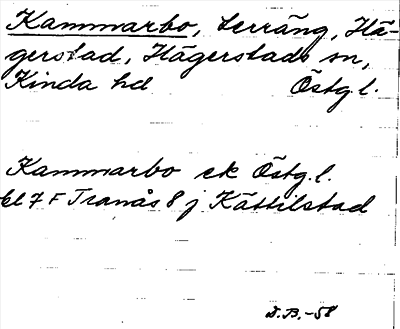 Kammarbo, terräng, Hä-
gerstad, Hägerstads sn,
Kinda hd Östg.l.
Kammarbo ek Östg.l.
bl 7 F Tranås 8 j Kättilstad
D.B.-58